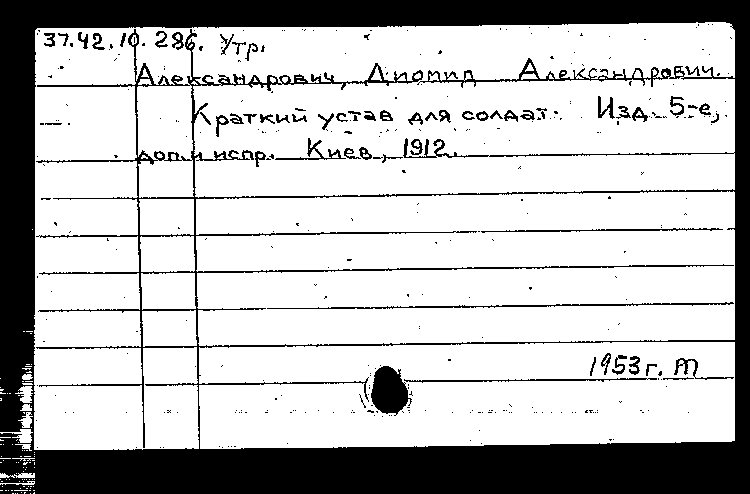 37.42.10.286. Утр.
Александрович, Диомид Александрович.
Краткий устав для солдат. Изд. 5-е,
доп.и испр. Киев, 1912.
1953 г. т